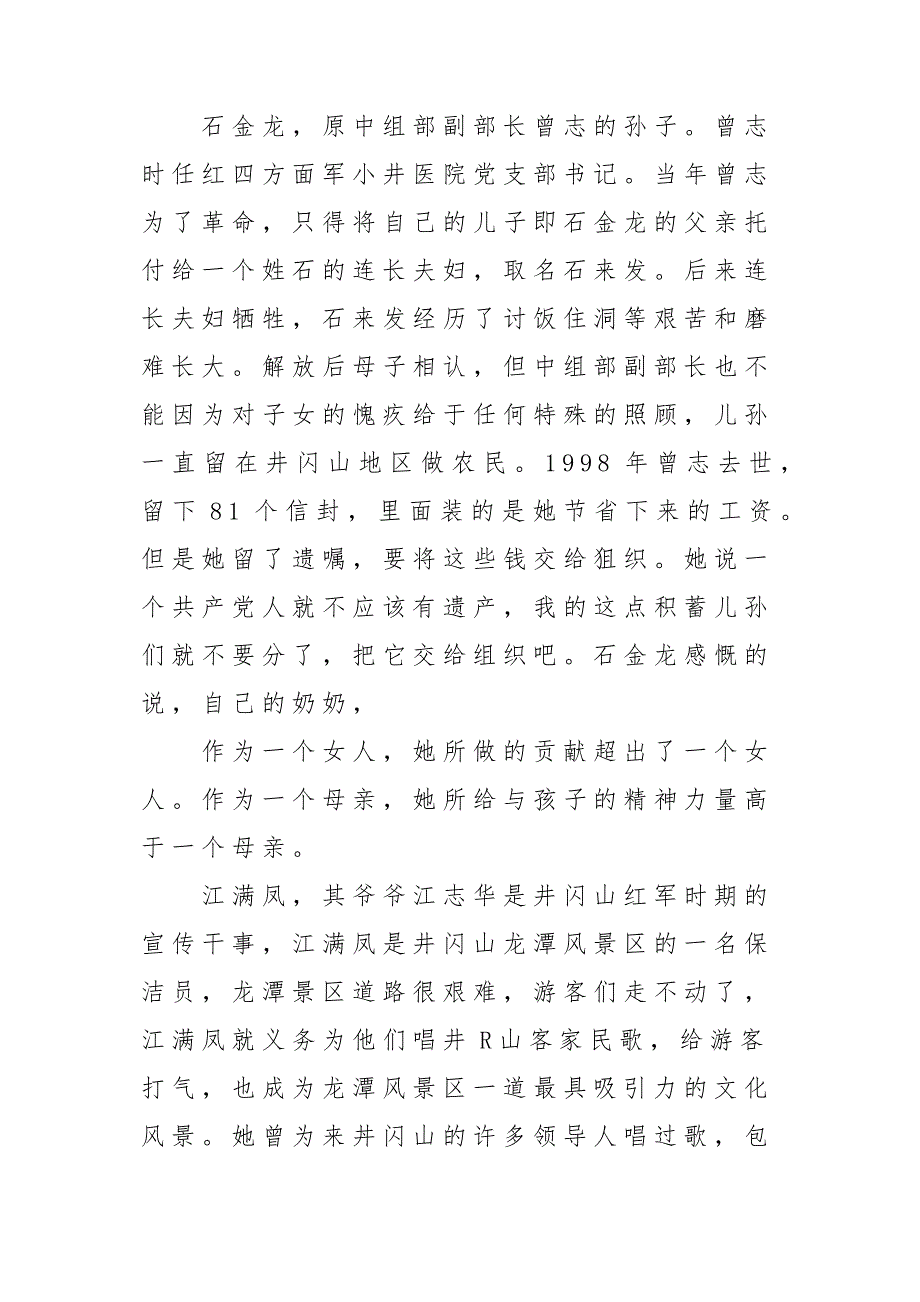 石金龙，原中组部副部长曾志的孙子。曾志
时任红四方面军小井医院党支部书记。当年曾志
为了革命，只得将自己的儿子即石金龙的父亲托
付给一个姓石的连长夫妇，取名石来发。后来连
长夫妇牺牲，石来发经历了讨饭住洞等艰苦和磨
难长大。解放后母子相认，但中组部副部长也不
能因为对子女的愧疚给于任何特殊的照顾，儿孙
一直留在井闪山地区做农民。1998 年曾志去世，
留下 81 个信封，里面装的是她节省下来的工资。
但是她留了遗嘱，要将这些钱交给狙织。她说一
个共产党人就不应该有遗产，我的这点积蓄儿孙
们就不要分了，把它交给组织吧。石金龙感慨的
说，自己的奶奶，
作为一个女人，她所做的贡献超出了一个女
人。作为一个母亲，她所给与孩子的精神力量高
于一个母亲。
江满凤，其爷爷江志华是井闪山红军时期的
宣传干事，江满凤是井闪山龙潭风景区的一名保
洁员，龙潭景区道路很艰难，游客们走不动了，
江满凤就义务为他们唱井 R山客家民歌，给游客
打气，也成为龙潭风景区一道最具吸引力的文化
风景。她曾为来丼闪山的许多领导人唱过歌，包